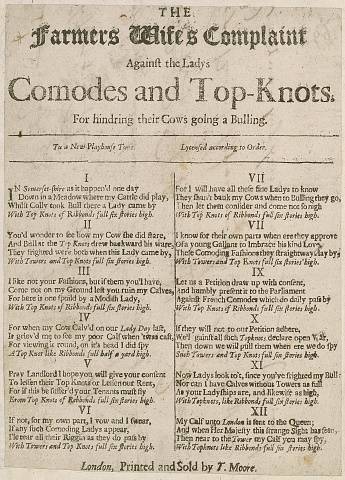 THE
Farmers Wife's Complaint
Against the Ladys
Comodes and Top-Knots.
For hindring their Cows going a Bulling.
To a New Playhouse Tune.
Lycensed according to Order.
I
IN Somerset-shire as it happen'd one day
Down in a Meadow where my Cattle did play,
Whilst Colly took Bull there a Lady came by
With Top Knots of Ribbonds full six stories high.
II
You'd wonder to see how my Cow she did stare,
And Bell at the Top Knots drew backward his ware,
They frighted were both when this Lady came by,
With Towers and Top Knots full six stories high.
III
I like not your Fashions, but if them you'll have,
Come not on my Ground left you ruin my Calves,
For here is one spoild by a Modish Lady,
With Top Knots of Ribbonds full six stories high.
IV
For when my Cow Calv'd on our Lady Day last,
It griev'd me to see my poor Calf when 'twas cast,
For viewing it round, on it's head I did spy
A Top Knot like Ribbonds full half a yard high.
V
Pray Landlord I hope you will give your consent
To lessen their Top Knots or Lessen our Rent,
For if this be suffer'd your Tenants must fly
From Top Knots of Ribbonds full six stories high.
VI
If not, for my own part, I vow and I swear,
If any such Comodes Ladys appear,
I'le tear all their Riggin as they do pass by
With Towers and Top Knots full six stories high.
VII
For I will have all these fine Ladys to know
They shan't bauk my Cows when to Bulling they go,
Then let them consider and come not so nigh
With Top Knots of Ribbonds full six stories high.
VII
I know for their own parts when ere they approve
Of a young Gallant to Imbrace his kind Love,
These Comodeing Fashions they straightways lay by,
With Towers and Top Knots full six stories high.
IX
Let us a Petition draw up with consent,
And humbly present it to the Parliament
Against French Comodes which do daily pass by
With Top Knots of Ribbonds full six stories high.
X
If they will not to our Petition adhere,
We'll
all their Topknots declare open War,
Then down we will pull them when ere we do spy
Such Towers and Top Knots full six stories high.
XI
Now Ladys look to't, since you've frighted my Bull
Nor can I have Calves without Towers as full
As your Ladyships are, and likewise as high,
With Topknots, like Ribbonds full six stories high.
XII
My Calf unto London is sent to the Queen;
And when Her Majesty this strange Sight has seen,
Then near to the Tower my Calf you may spy,
With Topknots, like Ribbonds full six stories high.
London, Printed and Sold by T. Moore.